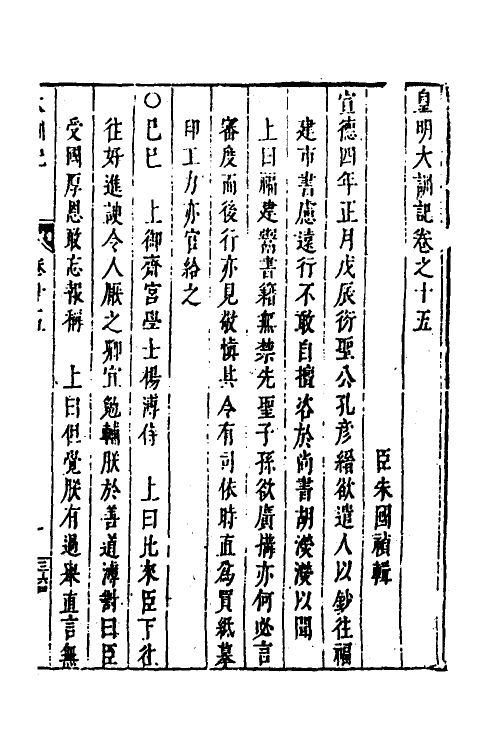 皇明大訓記卷之十五
臣朱國禎輯
宣德四年正月戊辰衍聖公孔彥縉欲遣人以鈔往福
建市書慮遠行不敢自擅咨於尚書胡濙濙以聞
上曰福建鬻書籍無禁先聖子孫欲廣搆亦何必言
審度而後行亦見敬慎其令有司依時直爲買紙摹
印工力亦官給之
○己巳　上御齋宮學士楊溥侍　上曰比來臣下徃
徃好進諛令人厭之卿宜勉輔朕於善道溥對曰臣
受國厚恩敢忘報稱　上曰但覺朕有過來直言無
卷十五